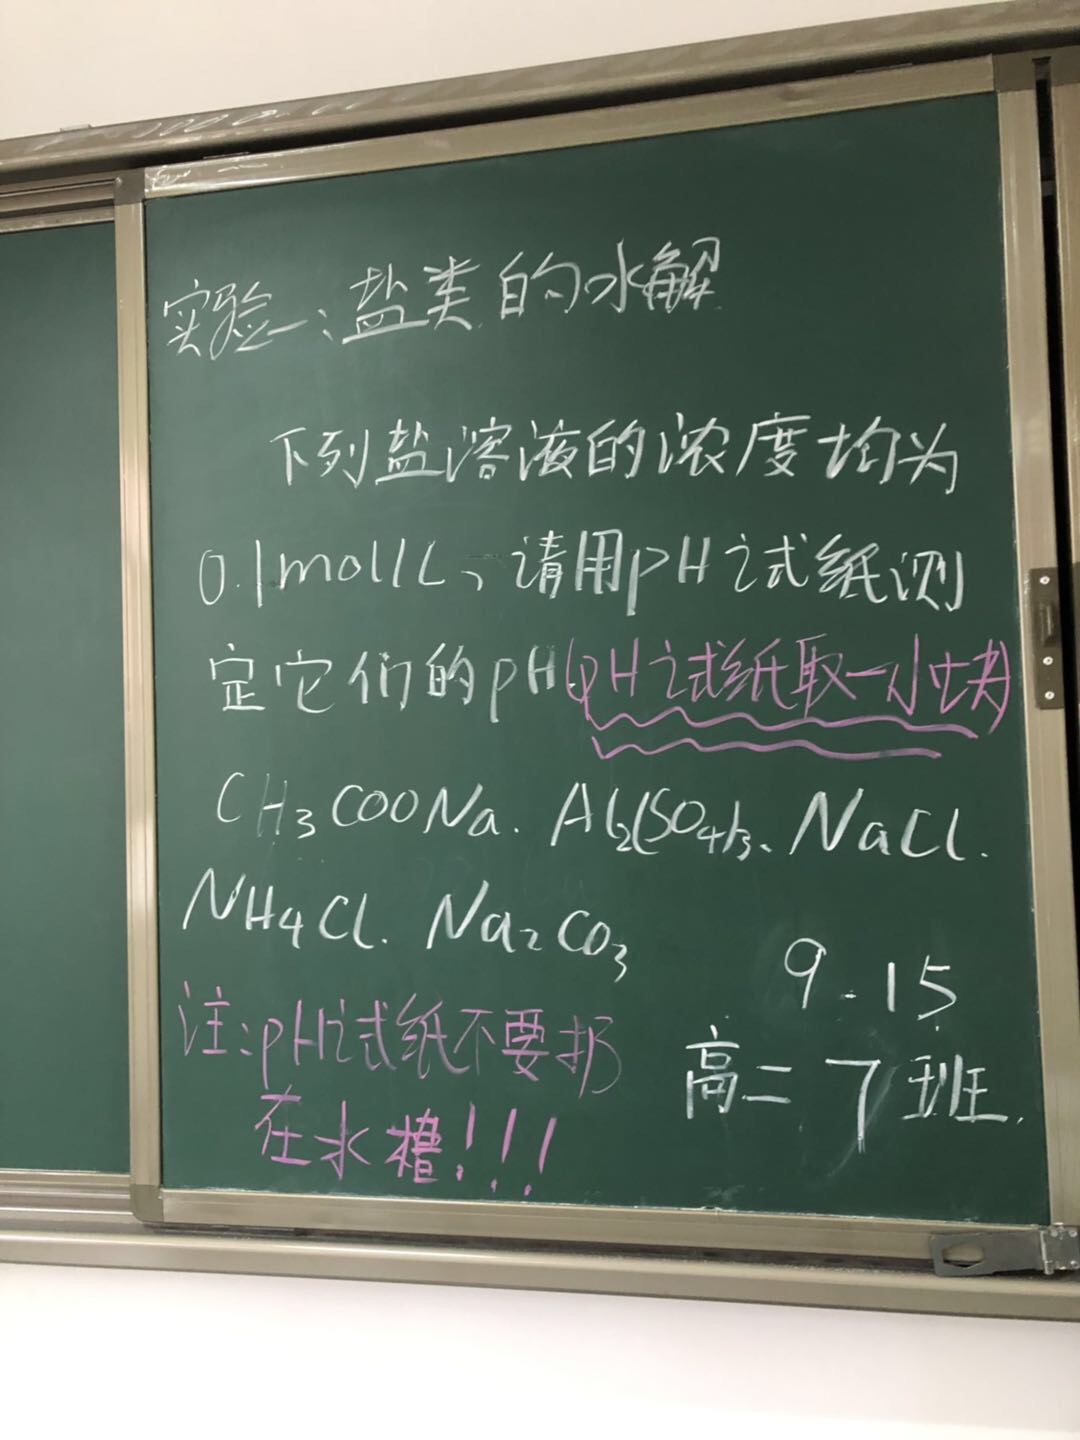 实验一:盐类的水解
下列盐溶液的浓度均为
0.1mol/L、请用pH试纸测
定它们的pH(pH试纸取一小块)
CH₃COONa. Al₂(SO₄)₃、NaCl.
NH₄Cl. Na₂CO₃
9.15
注:pH试纸不要扔
高二7班.
在水槽!!!